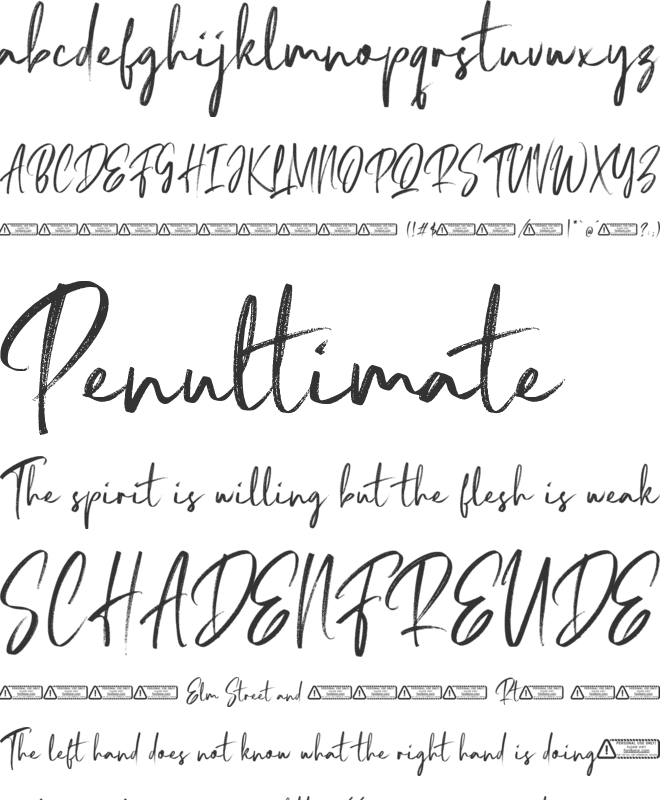 abcdefghijklmnopqrstuvwxyz
ABCDEFGHIJKLMNOPQRSTUVWXYZ
(!#$ / |*`@´ ?:;)
Penultimate
The spirit is willing but the flesh is weak
SCHADENFREUDE
Elm Street and Rt
The left hand does not know what the right hand is doing